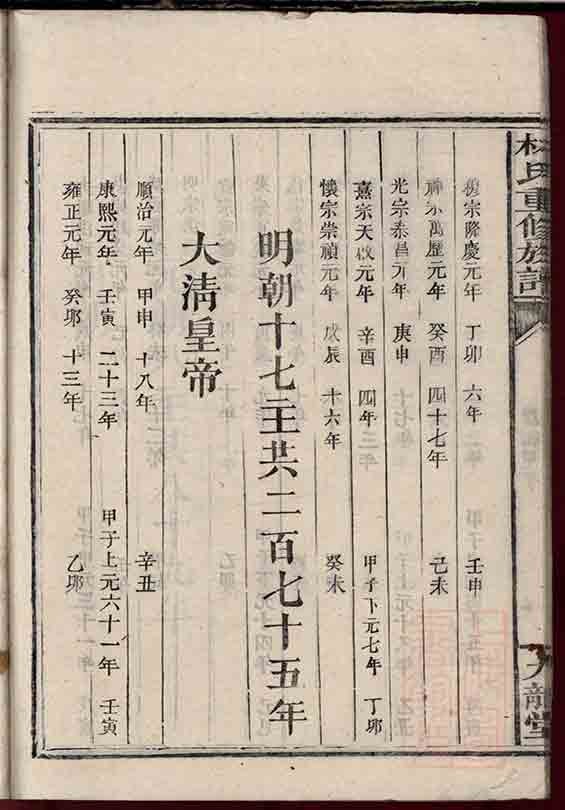 林氏重修族譜
穆宗隆慶元年 丁卯 六年 壬申
神宗萬歷元年 癸酉 四十七年 己未
光宗泰昌元年 庚申
熹宗天啟元年 辛酉 四年 甲子下元七年 丁卯
懷宗崇禎元年 戊辰 十六年 癸未
明朝十七主共二百七十五年
大清皇帝
順治元年 甲申 十八年 辛丑
康熙元年 壬寅 二十三年 甲子上元六十一年 壬寅
雍正元年 癸卯 十三年 乙卯
九龍堂